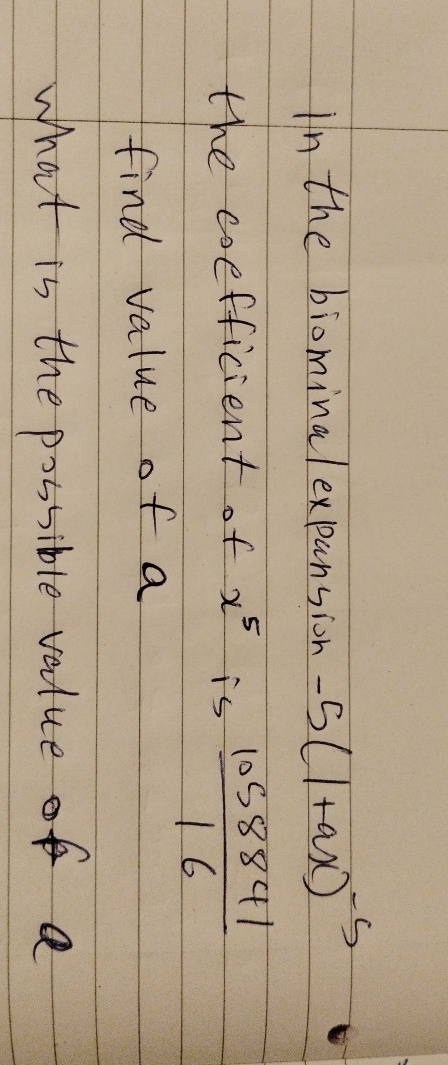 In the biominal expansion -5(1+ax)^-5
the coefficient of x^5 is 1058841/16
find value of a
what is the possible value of a